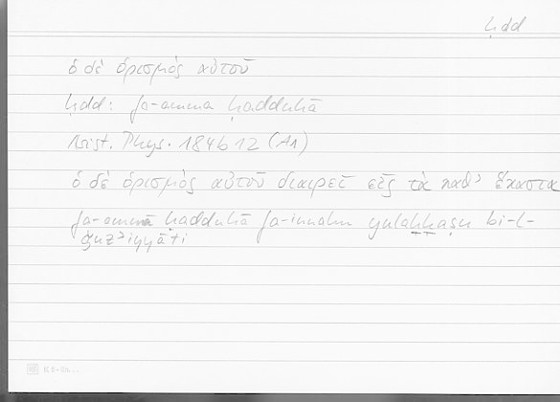 ḥdd
ὁ δὲ ὁρισμὸς αὐτοῦ
ḥdd: fa-ammā ḥadduhā
Arist. Phys. 184b12 (A1)
ὁ δὲ ὁρισμὸς αὐτοῦ διαιρεῖ εἰς τὰ καθ' ἕκαστα
fa-ammā ḥadduhā fa-innahu yulaḫḫaṣu bi-l-
ǧuzʾiyyāti